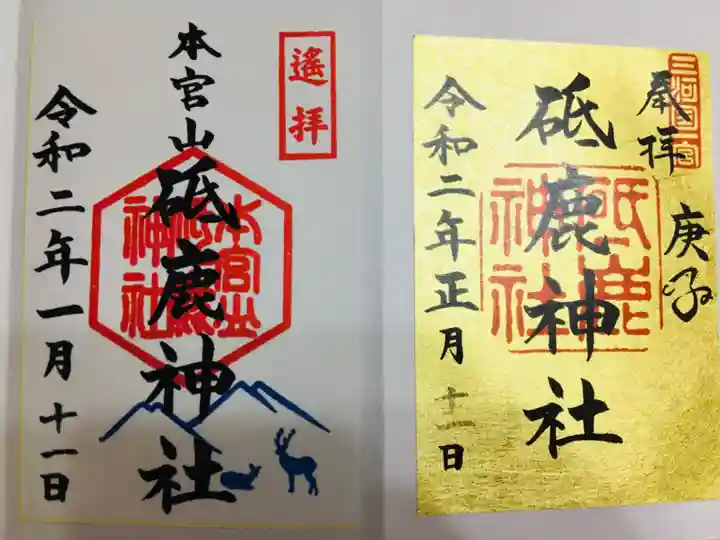 三河国一宮
奉拝
庚子
砥鹿神社
砥鹿神社
令和二年正月十一日
遙拝
本宮山
砥鹿神社
令和二年一月十一日